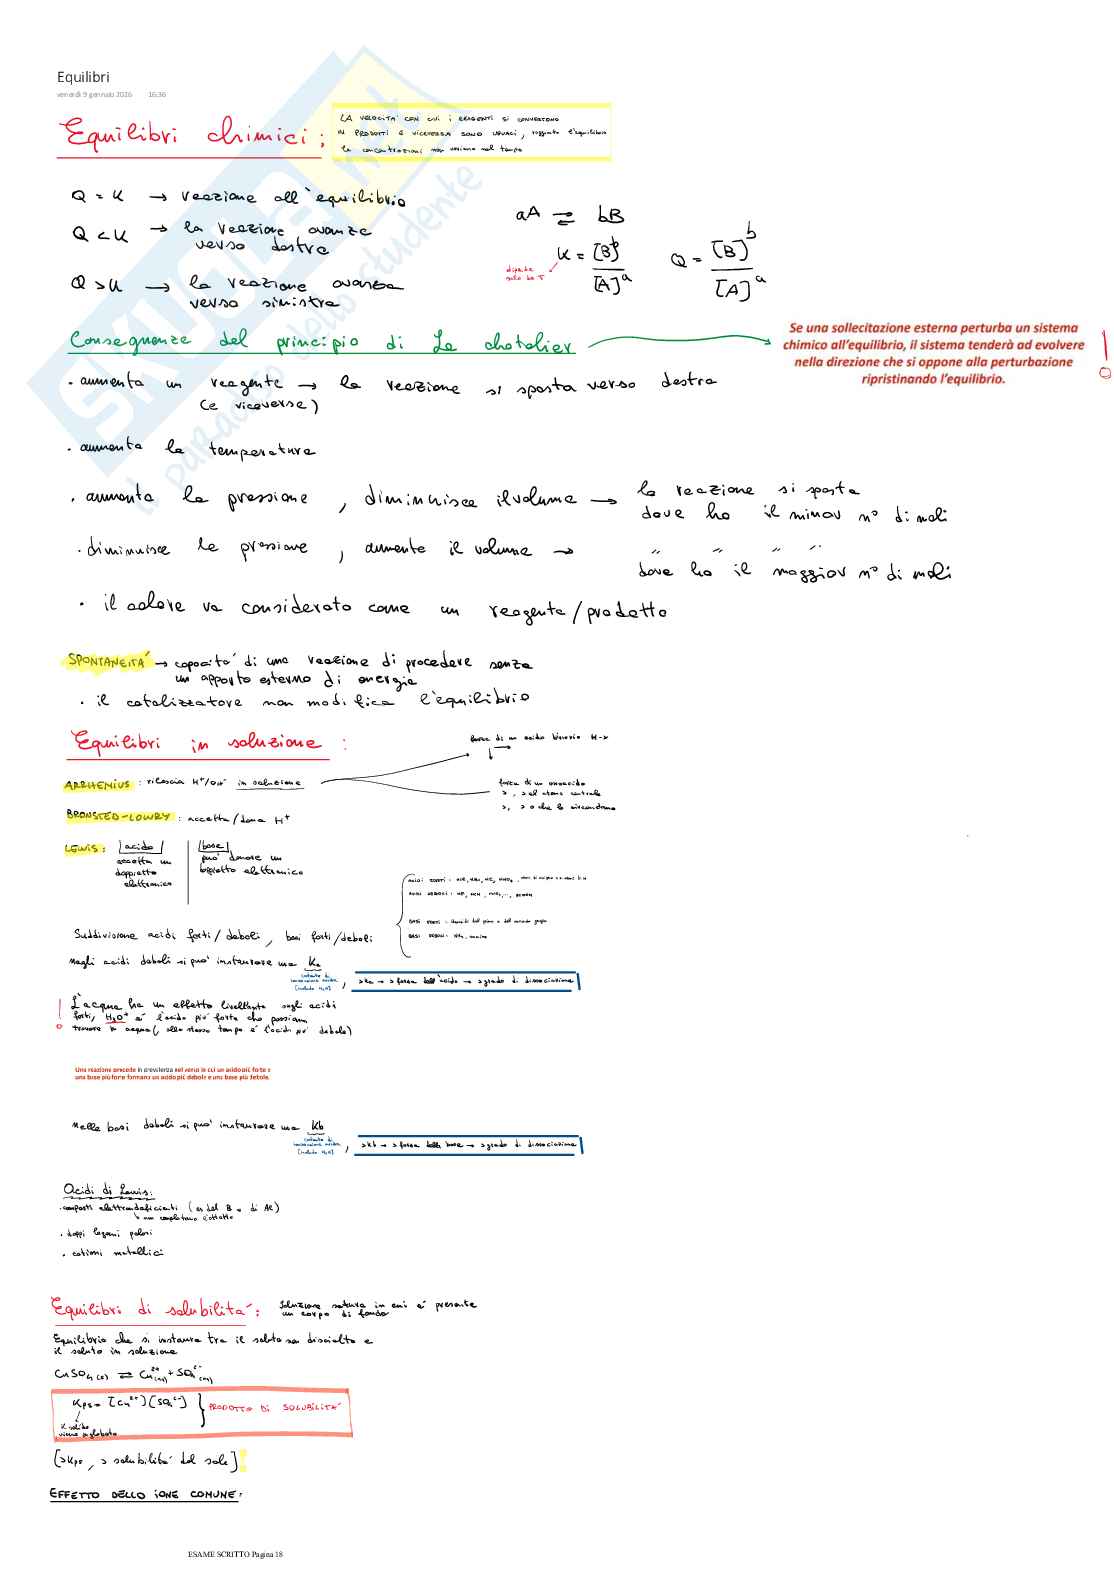 Equilibri
venerdì 9 gennaio 2026 16:36
Equilibri chimici:
LA VELOCITA' CON CUI I REAGENTI SI CONVERTONO
IN PRODOTTI E VICEVERSA SONO UGUALI, raggiunto l'equilibrio
le concentrazioni non variano nel tempo
Q = K → reazione all'equilibrio
Q < K → la reazione avanza
verso destra
Q > K → la reazione avanza
verso sinistra
aA ⇌ bB
K = [B]^b / [A]^a
Q = [B]^b / [A]^a
dipende
solo da T
Conseguenze del principio di Le chatelier
Se una sollecitazione esterna perturba un sistema
chimico all'equilibrio, il sistema tenderà ad evolvere
nella direzione che si oppone alla perturbazione
ripristinando l'equilibrio.
!
· aumenta un reagente → la reazione si sposta verso destra
(e viceversa)
· aumenta la temperatura
· aumenta la pressione, diminuisce il volume → la reazione si sposta
dove ho il minor n° di moli
· diminuisce la pressione, aumenta il volume → " " " "
dove ho il maggior n° di moli
· il calore va considerato come un reagente/prodotto
SPONTANEITA' → capacita' di una reazione di procedere senza
un apporto esterno di energia
· il catalizzatore non modifica l'equilibrio
Equilibri in soluzione:
forza di un acido binario H-x
ARRHENIUS: rilascia H+/OH- in soluzione
forza di un ossoacido
>, > el atomo centrale
>, > o che lo circondano
BRONSTED-LOWRY: accetta/dona H+
LEWIS: acido
accetta un
doppietto
elettronico
base
puo' donare un
doppietto elettronico
ACIDI FORTI: HCl, HBr, HI, HNO3,
ACIDI DEBOLI: HF, HCN
BASI FORTI: idrossidi del primo e del secondo gruppo
BASI DEBOLI: NH3, ammine
Suddivisione acidi forti/deboli, basi forti/deboli
Negli acidi deboli si puo' instaurare una Ka
costante di
ionizzazione acida
(include H2O)
, >ka → > forza dell'acido → > grado di dissociazione
! L'acqua ha un effetto livellante sugli acidi
forti, H3O+ e' l'acido piu' forte che possiamo
trovare in acqua (allo stesso tempo e' l'acido piu' debole)
Una reazione procede in prevalenza nel verso in cui un acido più forte e
una base più forte formano un acido più debole e una base più debole.
Nelle basi deboli si puo' instaurare una Kb
costante di
ionizzazione acida
(include H2O)
, >kb → > forza della base → > grado di dissociazione
Acidi di Lewis:
· composti elettrondeficienti (es del B o di Al)
non completano l'ottetto
· doppi legami polari
· cationi metallici
Equilibri di solubilita': Soluzione satura in cui e' presente
un corpo di fondo
Equilibrio che si instaura tra il soluto non disciolto e
il soluto in soluzione
CuSO4(s) ⇌ Cu2+(aq) + SO4 2-(aq)
Kps = [Cu2+][SO4 2-] } PRODOTTO DI SOLUBILITA'
il solido
viene inglobato
[>Kps, > solubilita' del sale]!
EFFETTO DELLO IONE COMUNE:
ESAME SCRITTO Pagina 18
SKUOLA.net
il paradiso dello studente